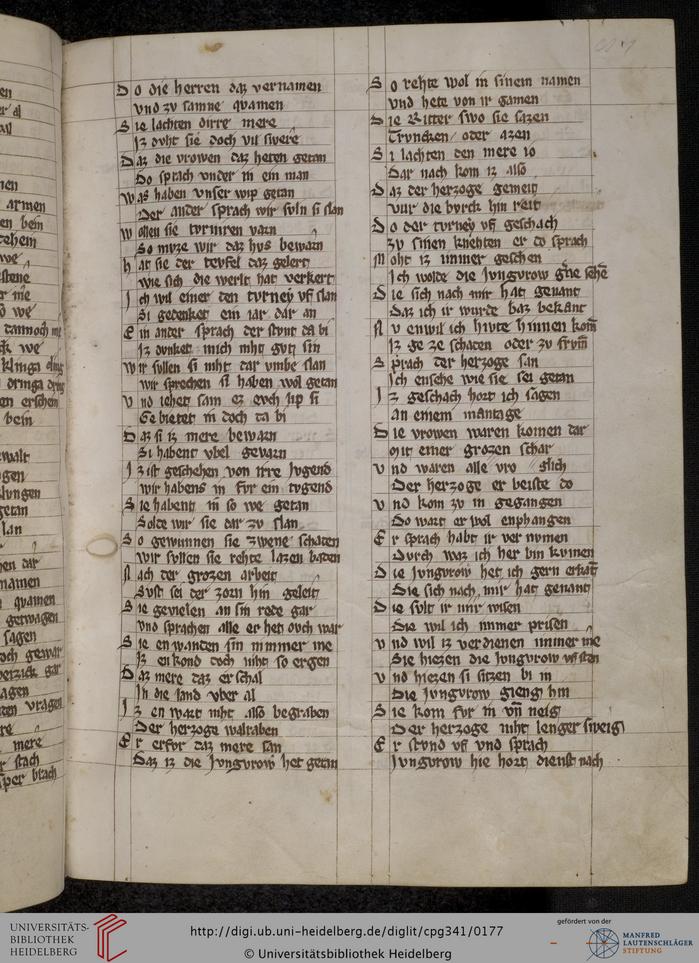 Do die herren daz vernamen
vnd zv samne qvamen
Sie lachten dirre mere
Iz dvht sie doch vil swere
Daz die vrowen daz heten getan
Do sprach vnder in ein man
Was haben vnser wip getan
Der ander sprach wir svln si slan
Wollen sie tvrniren varn
So mvze wir daz hvs bewarn
Hat sie der tevfel daz gelert
wie sich die werlt hat verkert
Ich wil einer den tvrney vf slan
Si gedenket ein iar dar an
Ein ander sprach der stvnt da bi
Iz dvnket mich niht gvt sin
Wir svllen si niht dar vmbe slan
wir sprechen si haben wol getan
Vnd iehet sam ez evch lip si
Gebietet in doch da bi
Daz si iz mere bewarn
Si habent vbel gevarn
Iz ist geschehen von irre Jvgend
wir habens in fvr ein tvgend
Sie habent in so we getan
Solde wir sie dar zv slan
So gewunnen sie zwene schaden
wir svllen sie rehte lazen baden
Nach der grozen arbeit
Svst sei der zorn hin geleit
Sie gevielen an sin rede gar
vnd sprachen alle er het ovch war
Sie enwanden sin nimmer me
Iz enkond doch niht so ergen
Daz mere daz erschal
In die land vber al
Iz en wart niht also begraben
Der herzoge walraben
Er erfvr daz mere san
Daz iz die Jvngvrow het getan
So rehte wol in sinem namen
vnd hete von ir gamen
Die Ritter swo sie sazen
Trvncken oder azen
Si lachten den mere io
Dar nach kom iz also
Daz der herzoge gemeit
vur die bvrck hin reit
Do der tvrney vf geschach
zv sinen knehten er do sprach
Moht iz immer geschen
Ich wolde die Jvngvrow gerne sehē
Die sich nach mir hat genant
Daz ich ir wurde baz bekant
Nv enwil ich hivte hinnen kom̄
Iz ge ze schaden oder zv frvm̄
Sprach der herzoge san
Ich ensehe wie sie sei getan
Iz geschach hort ich sagen
an einem mantage
Die vrowen waren komen dar
mit einer grozen schar
Vnd waren alle vro glich
Der herzoge er beiste do
Vnd kom zv in gegangen
Do wart er wol enphangen
Er sprach habt ir vernvmen
Dvrch waz ich her bin kvmen
Die Jvngvrow het ich gern erkāt
Die sich nach mir hat genant
Die svlt ir mir wisen
Die wil ich immer prisen
Vnd wil iz verdienen immer me
Sie hiezen die Jvngvrow vf sten
Vnd hiezen si sitzen bi in
Die Jvngvrow gieng hin
Sie kom fvr in vn̄ neig
Der herzoge niht lenger sweig
Er stvnd vf vnd sprach
Jvngvrow hie hort dienst nach
UNIVERSITÄTS-
BIBLIOTHEK
HEIDELBERG
http://digi.ub.uni-heidelberg.de/diglit/cpg341/0177
© Universitätsbibliothek Heidelberg
gefördert von der
MANFRED
LAUTENSCHLÄGER
STIFTUNG